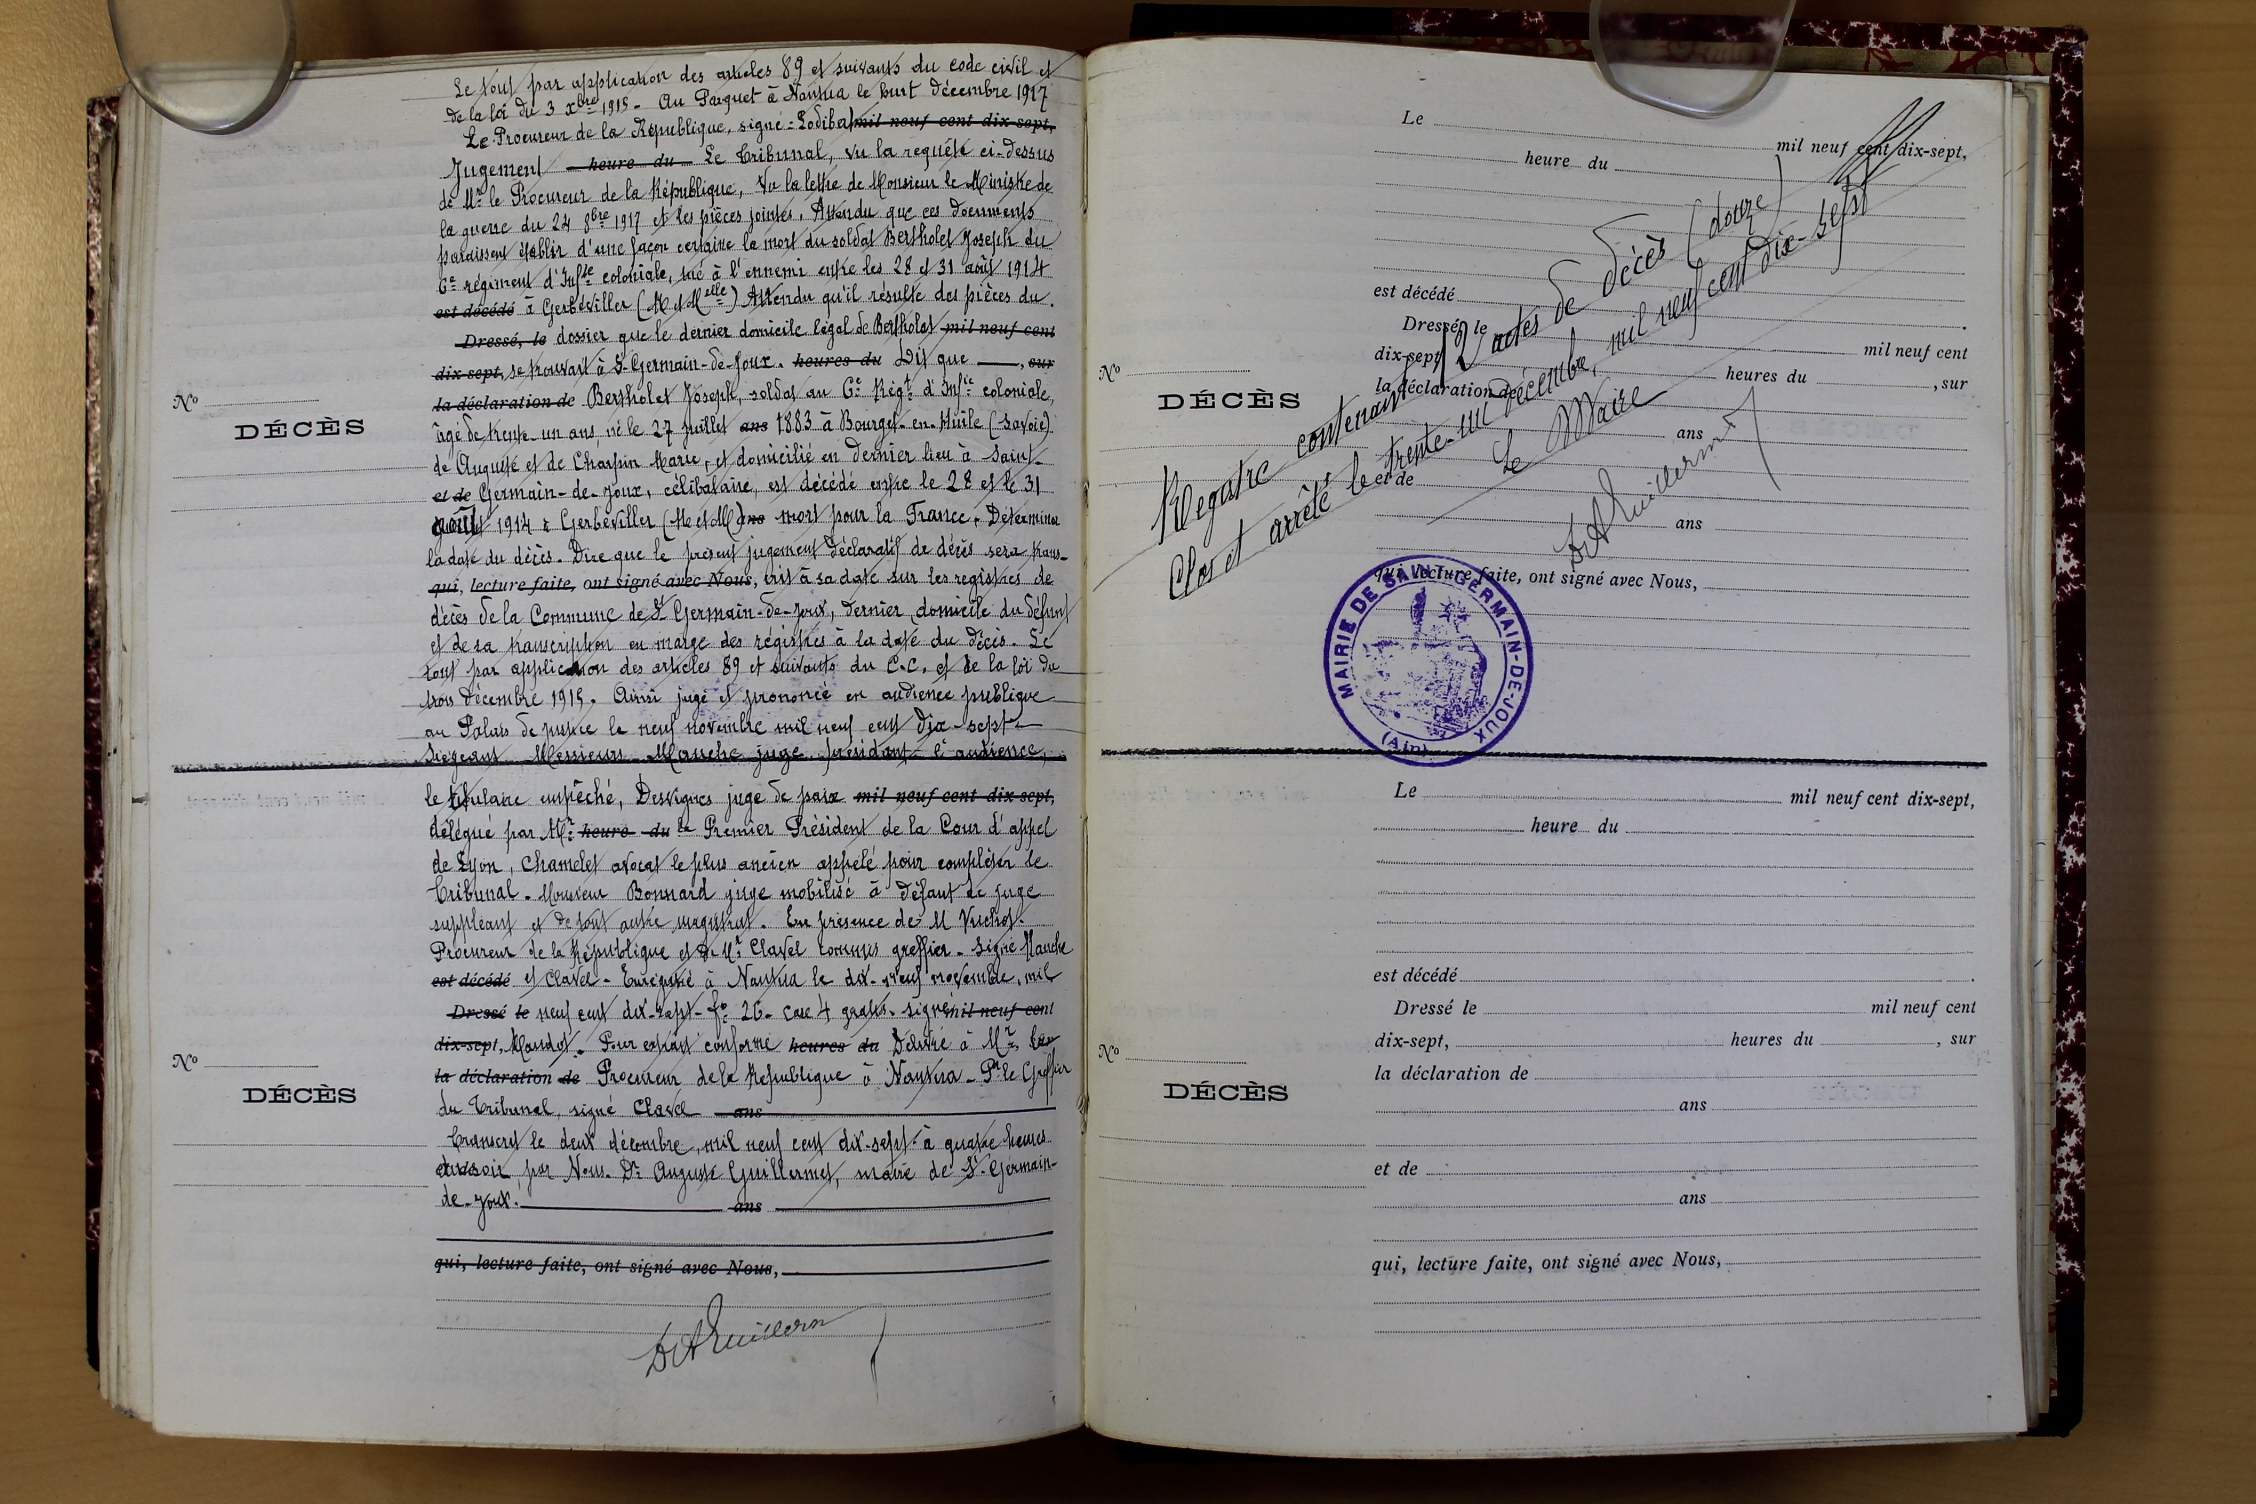 Le tout par application des articles 89 et suivants du code civil et
de la loi du 3 Xbre 1915 - Au Parquet à Nantua le huit décembre 1917
Le Procureur de la République, signé = mil neuf cent dix-sept,
Jugement heure du Le Tribunal, Vu la requête ci-dessus
de Mr le Procureur de la République, Vu la lettre de Monsieur le Ministre de
la guerre du 24 8bre 1917 et les pièces jointes, Attendu que ces documents
paraissent établir d'une façon certaine la mort du soldat Bertholet Joseph du
6e régiment d'Infie coloniale, tué à l'ennemi entre les 28 et 31 août 1914
est décédé à Gerbéviller (M et Melle) Attendu qu'il résulte des pièces du
Dressé, le dossier que le dernier domicile légal de Bertholet mil neuf cent
dix-sept, se trouvait à St-Germain-de-Joux. heures du Dit que , sur
la déclaration de Bertholet Joseph, soldat au 6e Régt d'Infie coloniale,
âgé de trente-un ans, né le 27 juillet ans 1883 à Bourget-en-Huile (Savoie)
de Auguste et de Charpin Marie, et domicilié en dernier lieu à Saint-
et de Germain-de-Joux, célibataire, est décédé entre le 28 et le 31
août 1914 à Gerbéviller (M et M) ans mort pour la France. Déterminer
la date du décès. Dire que le présent jugement déclaratif de décès sera trans-
qui, lecture faite, ont signé avec Nous, crit à sa date sur les registres de
décès de la Commune de St Germain-de-Joux, dernier domicile du défunt
et de sa transcription en marge des registres à la date du décès. Le
tout par application des articles 89 et suivants du C.C. et de la loi du
trois décembre 1915. Ainsi jugé et prononcé en audience publique
au Palais de justice le neuf novembre mil neuf cent dix-sept
Siégeant Messieurs juge présidant l'audience,
le titulaire empêché, Desvignes juge de paix mil neuf cent dix-sept,
délégué par Mr heure du le Premier Président de la Cour d'appel
de Lyon, Chamelet avocat le plus ancien appelé pour compléter le
Tribunal - Monsieur Bonnard juge mobilisé à défaut de juge
suppléant et de tout autre magistrat. En présence de M
Procureur de la République et de Mr Clavel commis greffier - Signé
est décédé et Clavel - Enregistré à Nantua le dix-neuf novembre, mil
Dressé le neuf cent dix-sept - fo 26 - case 4 gratis. signé mil neuf cent
dix-sept, Pour extrait conforme heures du Délivré à Mr, sur
la déclaration de Procureur de la République à Nantua - Pr le Greffier
du Tribunal, signé Clavel ans
Transcrit le deux décembre, mil neuf cent dix-sept à quatre heures
du soir par Nous. Dr Auguste Guillermet, maire de St-Germain-
de-Joux. ans
qui, lecture faite, ont signé avec Nous,
No
DÉCÈS
No
DÉCÈS
Le mil neuf cent dix-sept,
heure du
est décédé
Dressé, le mil neuf cent
dix-sept, heures du , sur
la déclaration de
ans
et de
ans
qui, lecture faite, ont signé avec Nous,
No
DÉCÈS
Registre contenant 12 actes de décès (douze)
Clos et arrêté le trente-un décembre, mil neuf cent dix-sept
Le Maire
MAIRIE DE SAINT-GERMAIN-DE-JOUX
(Ain)
Le mil neuf cent dix-sept,
heure du
est décédé
Dressé le mil neuf cent
dix-sept, heures du , sur
la déclaration de
ans
et de
ans
qui, lecture faite, ont signé avec Nous,
No
DÉCÈS